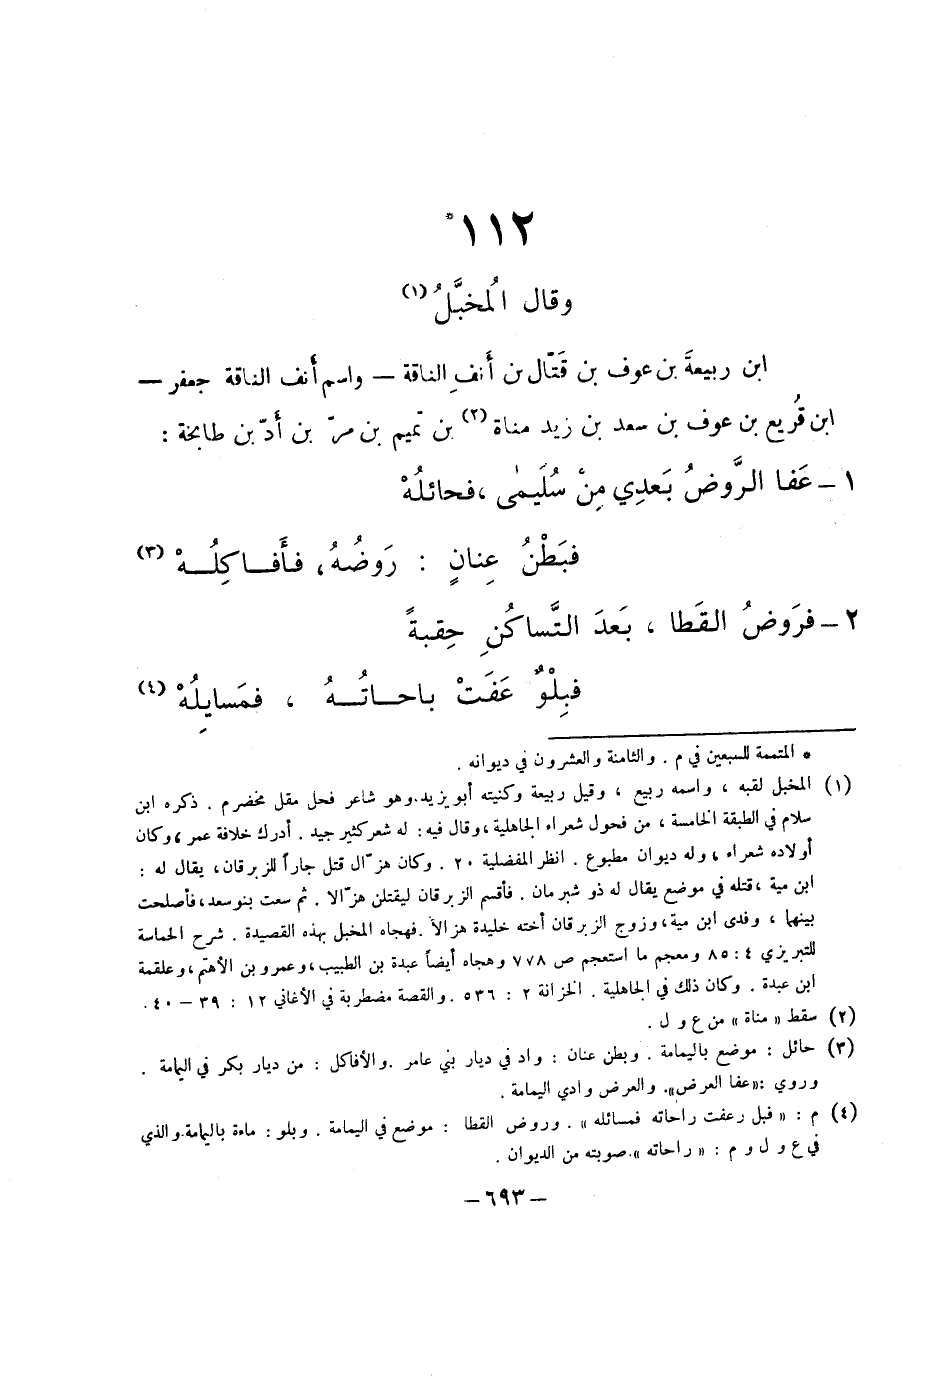 ١١٢*
وقال المُخبَّلُ(١)
ابن ربيعةَ بن عوف بن قَتّال بن أَنفِ الناقة — واسم أَنف الناقة جعفر —
ابن قُريع بن عوف بن سعد بن زيد مناة(٢) بن تميم بن مرّ بن أدّ بن طابخة :
١ – عَفا الرَّوضُ بَعدِي مِنْ سُلَيمٰى ، فحائلُهْ
فبَطْنُ عِنانٍ : رَوضُهُ ، فأَفاكِلُهْ (٣)
٢ – فرَوضُ القَطا ، بَعدَ التَّساكُنِ حِقبةً
فبِلْوٌ عَفَتْ باحاتُهُ ، فمَسايِلُهْ (٤)
* المتممة للسبعين في م . والثامنة والعشرون في ديوانه .
(١) المخبل لقبه ، واسمه ربيع ، وقيل ربيعة وكنيته أبو يزيد.وهو شاعر فحل مقل مخضرم . ذكره ابن
سلام في الطبقة الخامسة ، من فحول شعراء الجاهلية ،وقال فيه: له شعر كثير جيد . أدرك خلافة عمر ، وكان
أولاده شعراء ، وله ديوان مطبوع . انظر المفضلية ٢٠ . وكان هزّال قتل جاراً للزبرقان، يقال له :
ابن مية ،قتله في موضع يقال له ذو شبرمان . فأقسم الزبرقان ليقتلن هزّالا . ثم سعت بنو سعد،فأصلحت
بينهما ، وفدى ابن مية،وزوج الزبرقان أخته خليدة هزالاً .فهجاه المخبل بهذه القصيدة . شرح الحماسة
للتبريزي ٤ :٨٥ ومعجم ما استعجم ص ٧٧٨ وهجاه أيضاً عبدة بن الطبيب،وعمرو بن الأهتم،وعلقمة
ابن عبدة . وكان ذلك في الجاهلية . الخزانة ٢ : ٥٣٦ .والقصة مضطربة في الأغاني ١٢ : ٣٩ – ٤٠ .
(٢) سقط « مناة » من ع و ل .
(٣) حائل : موضع باليمامة . وبطن عنان : واد في ديار بني عامر .والأفاكل : من ديار بكر في اليمامة .
وروي :«عفا العرض». والعرض وادي اليمامة .
(٤) م : « فبل رعفت راحاته فمسائله » . وروض القطا : موضع في اليمامة . وبلو: ماءة باليمامة.والذي
في ع و ل و م : « راحاته ».صوبته من الديوان .
– ٦٩٣ –